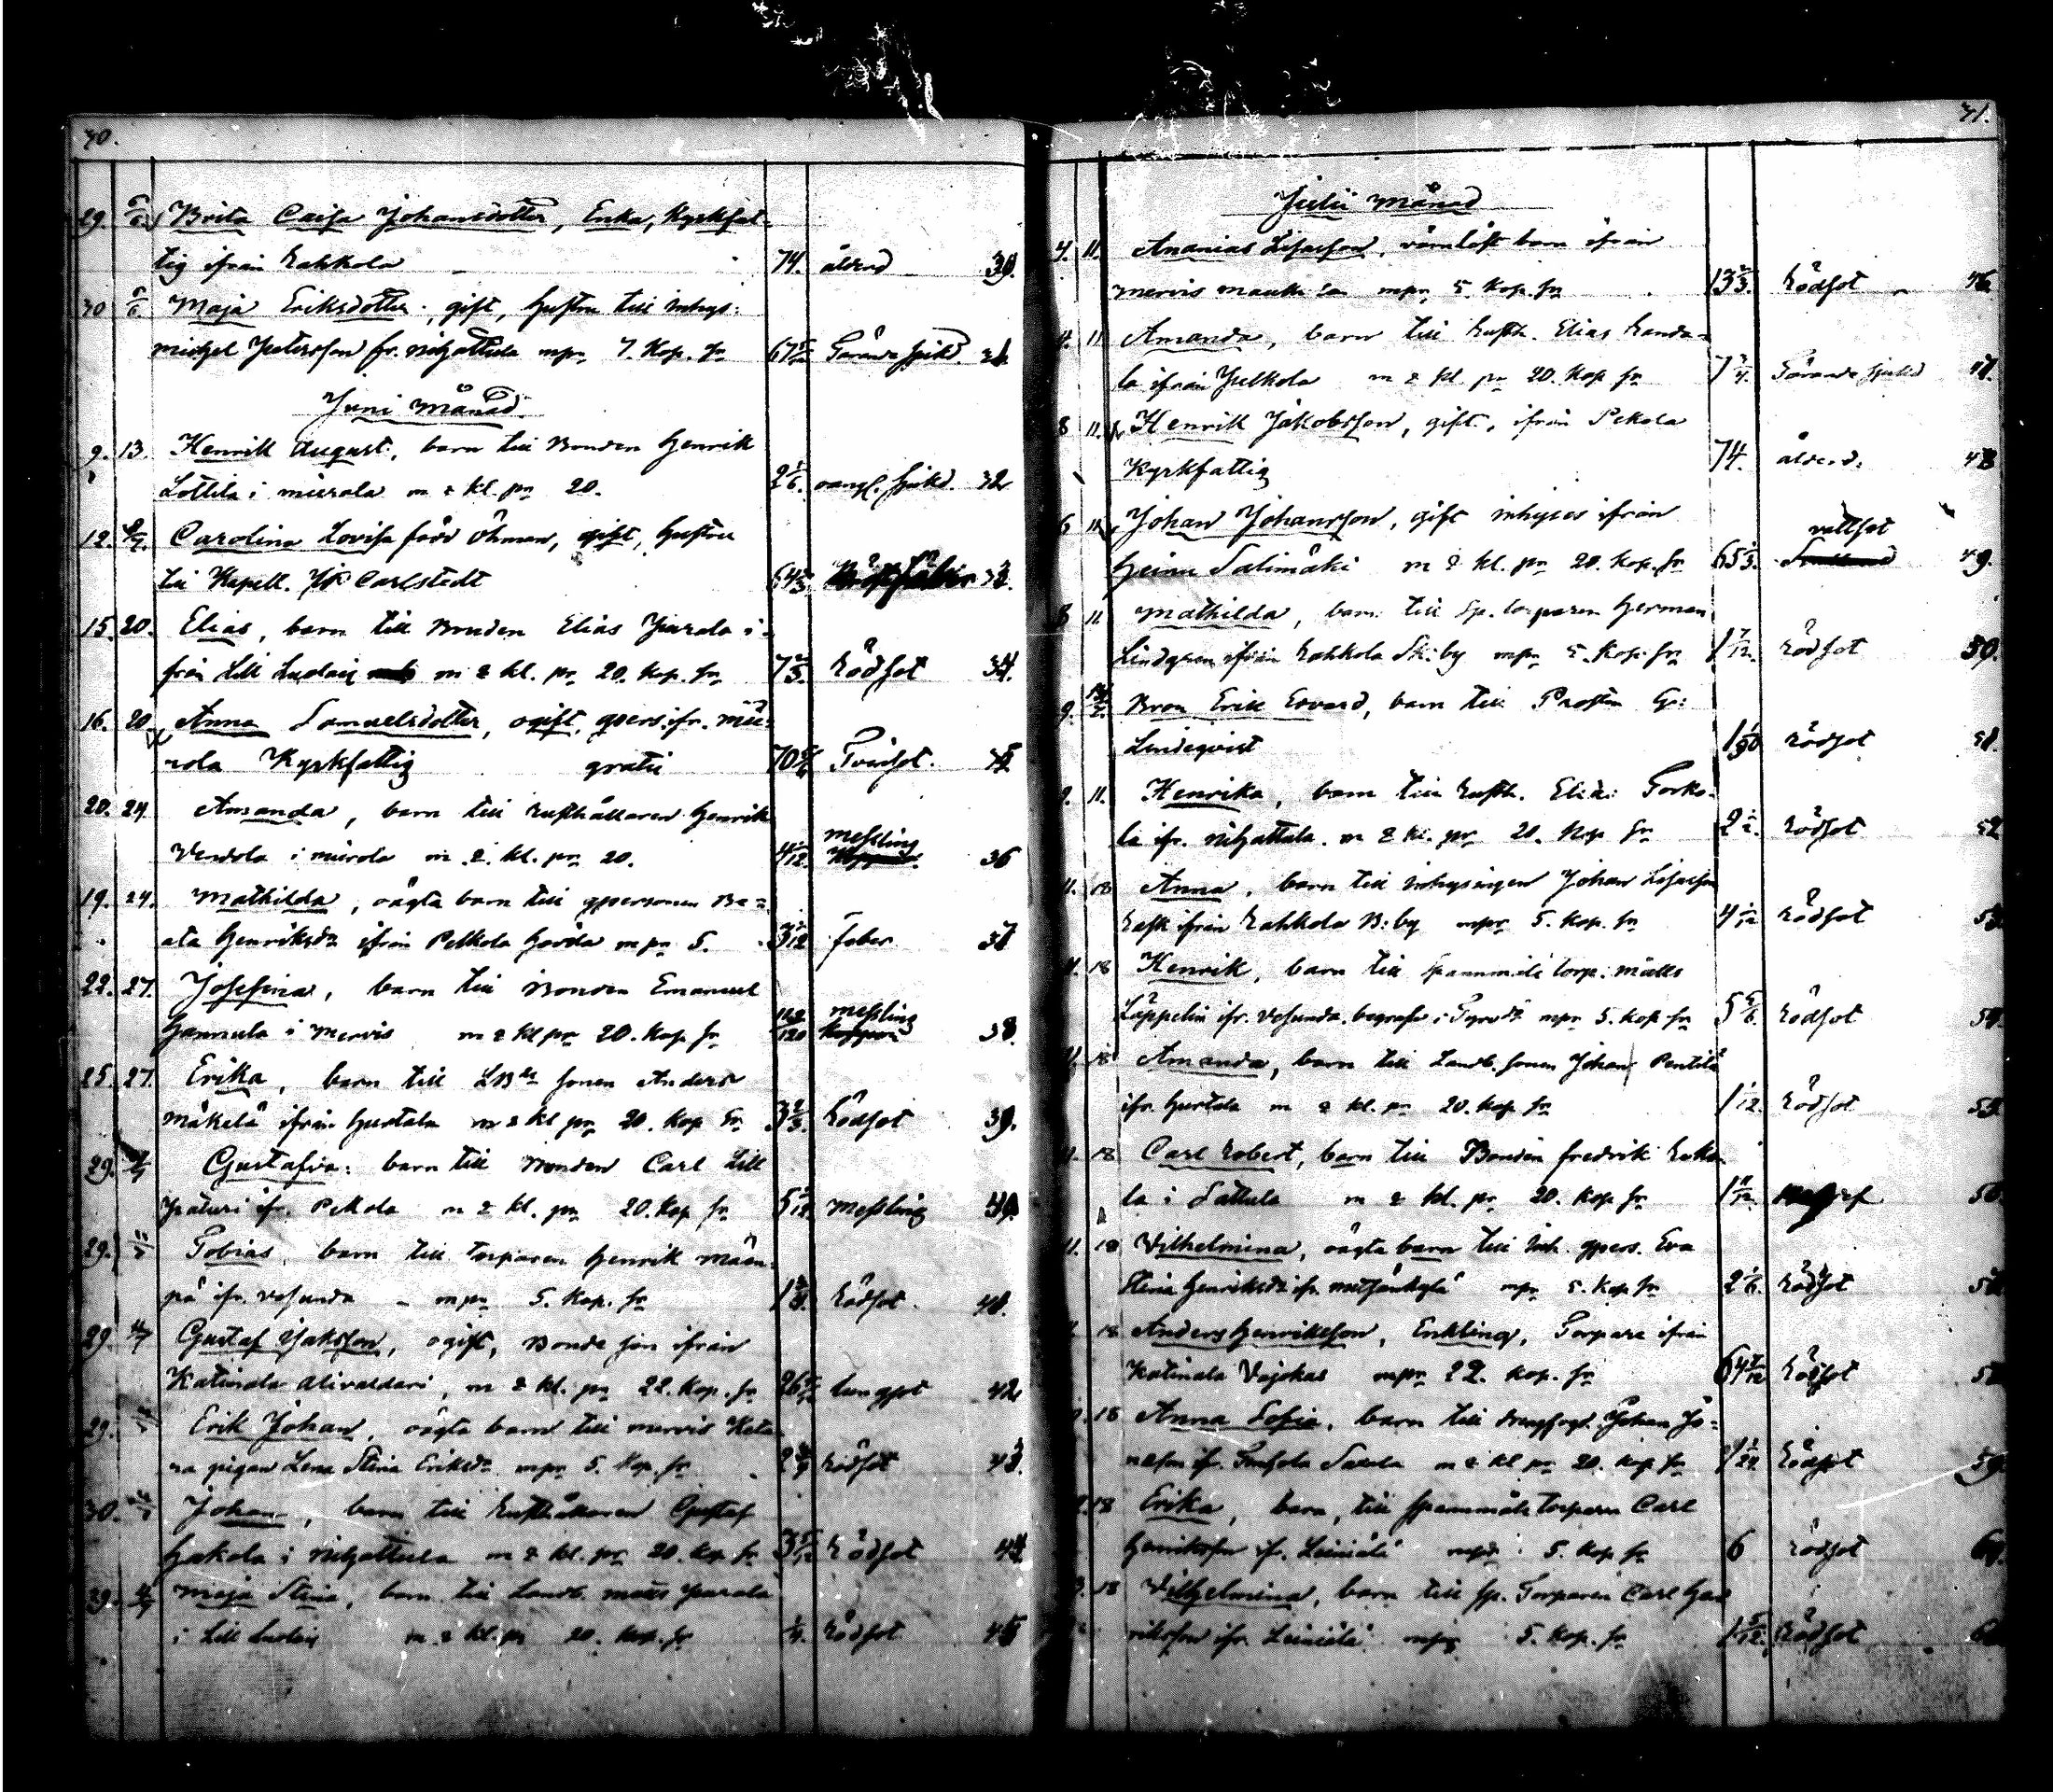 30.
29. 6/6 Brita Caisa Johansdotter, Enka, Kyrkfat-
tig ifrån Rahkola 74. ålderd. 30.
30 Maja Eriksdotter, gift, hustru till inhys:
Michel Petersson fr. Nihattula mpr 7. Kop. Sr 67 Tärande sjukd. 31.
Juni Månad.
9. 13. Henrik August, barn till Bonden Henrik
Lottila i Mierola m 2 kl. pr 20. 2 1/6. oangf. sjukd. 32
12. Carolina Lovisa född Öhman, gift, hustru
till Kapell. Carlstedt 64
15. 20. Elias, barn till Bonden Elias Parola i-
från Lill Luolais m 2 kl. pr 20. Kop. Sr 7 2/3. Rödsot 34.
16. 20 Anna Samuelsdotter, ogift, qpers. ifr. Mie-
rola Kyrkfattig gratis 70 Tvinsot. 35
20. 24 Amanda, barn till Rusthållaren Henrik
Uotola i Mierola m 2. kl. pr 20. 4 1/12 Messling 36
19. 24. Mathilda, oägta barn till qpersonen Be-
ata Henriksdr ifrån Pelkola Gårda mpr 5. 3 1/12 feber 37
22. 27. Josefina, barn till Bonden Emanuel
Hannula i Mervis m 2 kl pr 20. Kop. Sr Messling 38.
25. 27. Erika, barn till LBds sonen Anders
Mäkelä ifrån Hurtala m 2 kl pr 20. Kop Sr 3 2/3. Rödsot 39.
29. Gustafva: barn till Bonden Carl Lill
Paturi ifr. Pekola m 2 kl. pr 20. Kop Sr 5 Messling 40
29. Tobias, barn till Torparen Henrik Mäen-
pä ifr. Vesunda mpr 5. Kop. Sr 1 Rödsot. 41.
29. Gustaf Isaksson, ogift, Bonde son ifrån
Katinala Alivaldari, m 2 kl. pr 22. Kop. Sr 26 Lungsot 42
29. Erik Johan, oägta barn till Mervis Keta-
ra pigan Lena Stina Eriksdr mpr 5. Kop. Sr 2 Rödsot 43
30. Johan, barn till Rusthållaren Gustaf
Hakola i Nihattula m 2 kl. pr 20. Kop Sr 3 Rödsot 44
29. Maja Stina, barn till Landb. Matts Parola
i Lill Luolais m 2 kl. pr 20. Kop. Sr Rödsot 45
31.
Julii Månad
4. 11. Ananias Esaiasson, värnlöst barn ifrån
Mervis mpr 5. Kop. Sr 13 2/3. Rödsot 46
4. 11 Amanda, barn till Rusth. Elias
la ifrån Pelkola m 2 kl. pr 20. Kop Sr 7 Tärande sjukd 47.
8 11. Henrik Jakobsson, gift, ifrån Pekola
Kyrkfattig 74. ålderd. 48
6 11. Johan Johansson, gift inhyses ifrån
Heinu Salimäki m 2 kl. pr 20. Kop. Sr 65 1/3. vattsot 49.
8 11 Mathilda, barn till Sp. torparen Herman
Lindgren ifrån Rahkola Sk: by mpr 5. Kop. Sr 1 7/12. Rödsot 50.
9. Bror Erik Edvard, barn till Prosten G:
Lindeqvist Rödsot 51.
9. 11. Henrika, barn till Rusth. Elias Torko-
la ifr. Nihattula m 2 kl. pr 20. Kop Sr 2 1/2. Rödsot 52
11. 18 Anna, barn till inhysingen Johan Esaiasson
Rask ifrån Rahkola B: by mpr 5. Kop. Sr 4 1/12 Rödsot 53
11. 18 Henrik, barn till Spannmåls torp: Matts
Läppelin ifr. Vesunda. begrafven i mpr 5. Kop Sr 5 5/6. Rödsot 54.
11. 18 Amanda, barn till Landb. sonen Johan Pentilä
ifr. Hurtala m 2 kl. pr 20. Kop Sr 1 1/12. Rödsot 55.
11. 18 Carl Robert, barn till Bonden Fredrik
la i Sattula m 2 kl. pr 20. Kop Sr 1 11/12. 56
11. 18 Vilhelmina, oägta barn till inh. qpers. Eva
Stina Henriksdr ifr. Metsänkylä mpr 5. Kop Sr 2 1/6. Rödsot 57
18 Anders Henriksson, Enkling, Torpare ifrån
Katinala mpr 22. Kop. Sr 64 7/12 Rödsot 58
18 Anna Sofia, barn till Johan Jo-
nasson ifr. m 2 kl pr 20. Kop Sr Rödsot 59.
18 Erika, barn, till Spannmåls torparen Carl
Henriksson ifr. Leiniälä mpr 5. Kop Sr 6 Rödsot 60.
18 Vilhelmina, barn till Sp. Torparen Carl Hen-
riksson ifr. Leiniälä mpr 5. Kop. Sr 1 5/12. Rödsot 61